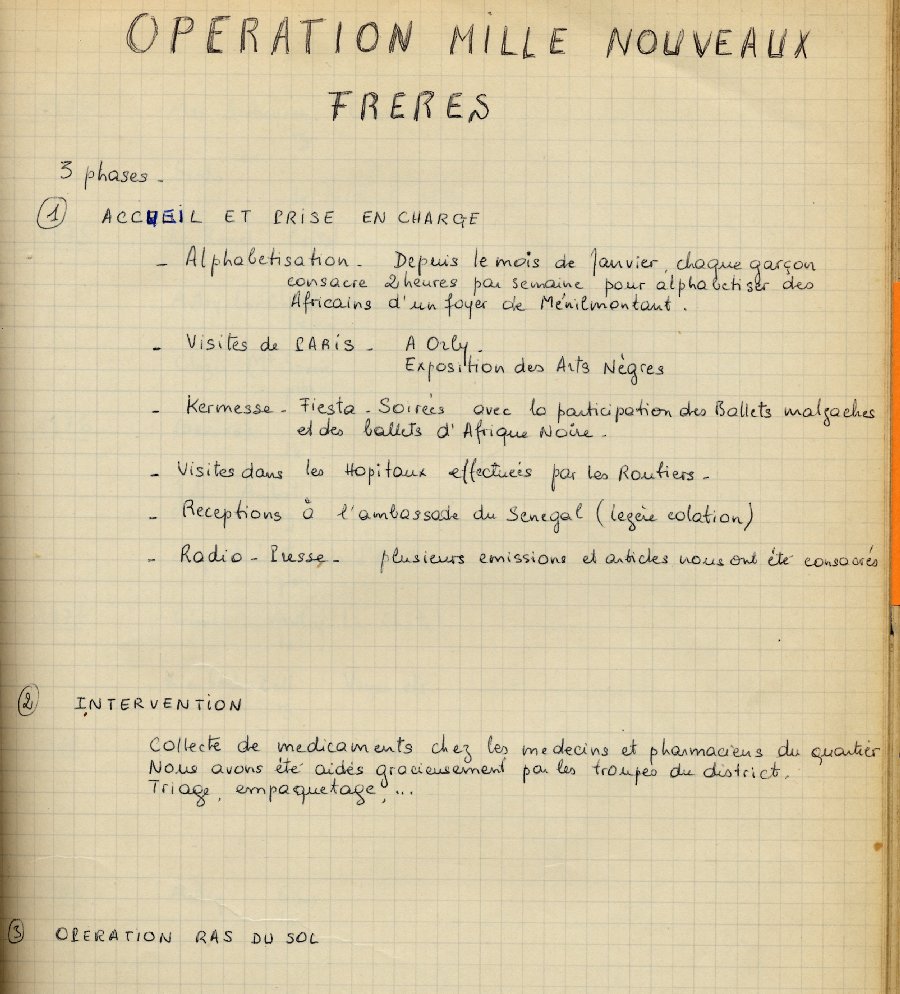 OPERATION MILLE NOUVEAUX
FRERES
3 phases -
1 ACCUEIL ET PRISE EN CHARGE
- Alphabetisation - Depuis le mois de Janvier, chaque garçon
consacre 2 heures par semaine pour alphabetiser des
Africains d'un foyer de Ménilmontant.
- Visites de PARIS - A Orly -
Exposition des Arts Nègres
- Kermesse - Fiesta - Soirées avec la participation des Ballets malgaches
et des ballets d'Afrique Noire -
- Visites dans les Hopitaux effectuées par les Routiers -
- Receptions à l'ambassade du Senegal (legère colation)
- Radio - Presse - plusieurs emissions et articles nous ont été consacrés
2 INTERVENTION
Collecte de medicaments chez les medecins et pharmaciens du quartier
Nous avons été aidés gracieusement par les troupes du district.
Triage, empaquetage, ...
3 OPERATION RAS DU SOL